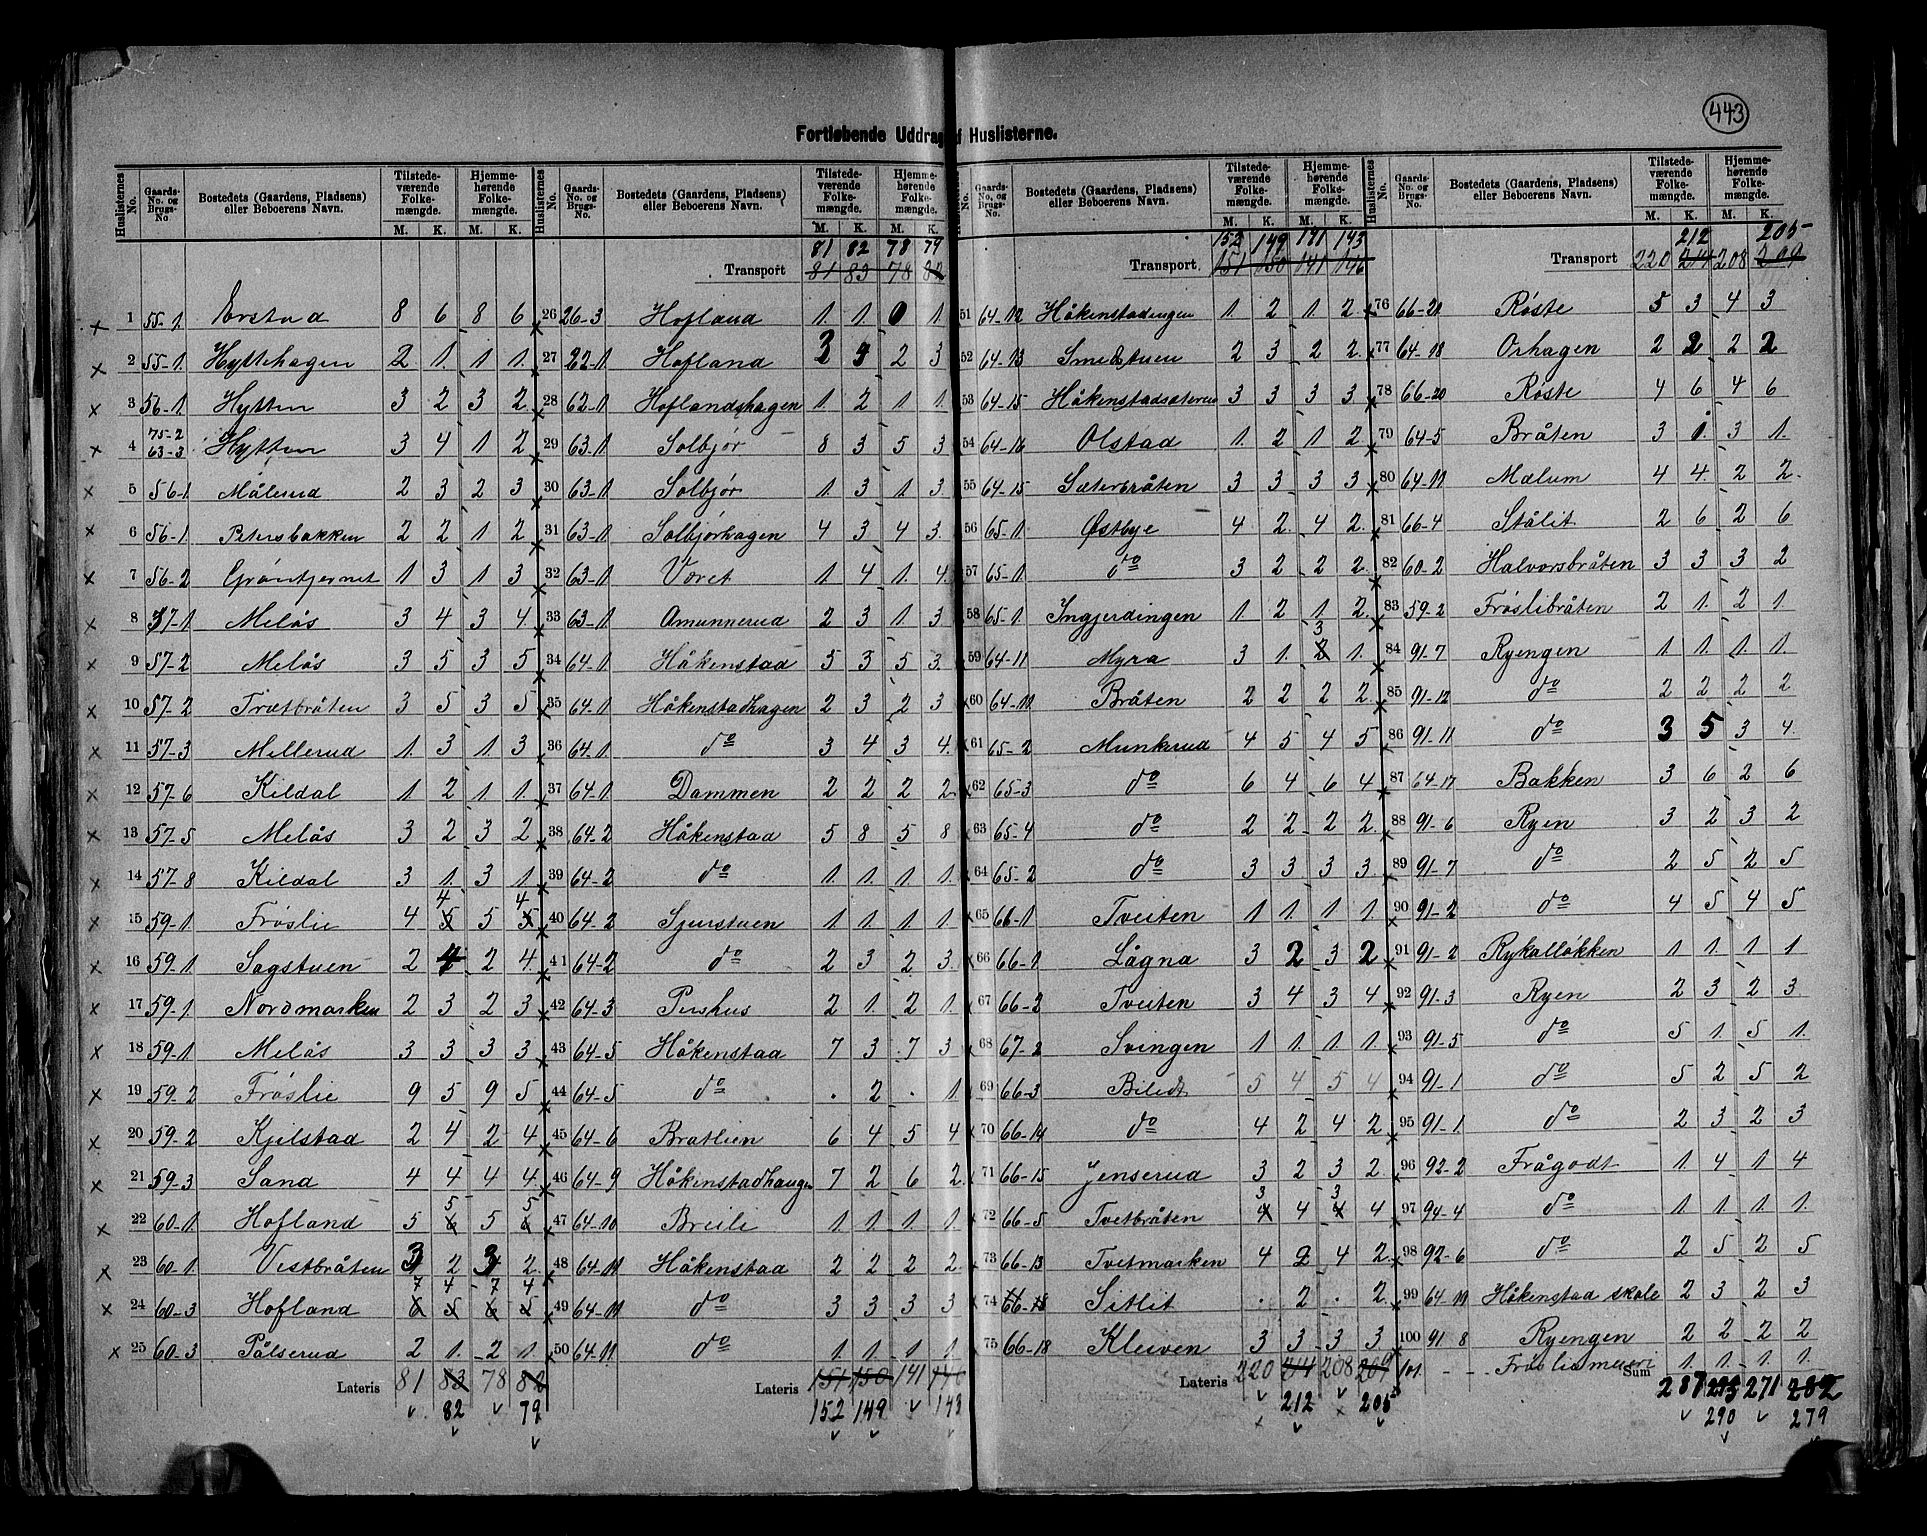 443
Fortløbende Uddrag af Huslisterne.
Huslisternes No. Gaards-No. og Brugs-No. Bostedets (Gaardens, Pladsens) eller Beboerens Navn. Tilstedeværende Folkemængde. M. K. Hjemmehørende Folkemængde. M. K.
1 55-1 Erstad 8 6 8 6
2 55-1 Hyttehagen 2 1 1 1
3 56-1 Hytten 3 2 3 2
4 75-2 63-3 Hytten 3 4 1 2
5 56-1 Målerud 2 3 2 3
6 56-1 Petersbakken 2 2 1 2
7 56-2 Grøntjernet 1 3 1 3
8 57-1 Melås 3 4 3 4
9 57-2 Melås 3 5 3 5
10 57-2 Trætbråten 3 5 3 5
11 57-3 Millerud 1 3 1 3
12 57-6 Kildal 1 2 1 1
13 57-5 Melås 3 2 3 2
14 57-8 Kildal 3 1 3 1
15 59-1 Frøslie 4 5 4 5 5 4
16 59-1 Sagstuen 2 4 2 4
17 59-1 Nordmarken 2 3 2 3
18 59-1 Melås 3 3 3 3
19 59-2 Frøslie 9 5 9 5
20 59-2 Kjelstad 2 4 2 4
21 59-3 Sand 4 4 4 4
22 60-1 Hofland 5 6 5 5 6 5
23 60-1 Vestbråten 3 2 3 2
24 60-3 Hofland 6 7 5 4 6 7 5 4
25 60-3 Pålserud 2 1 2 1
Lateris 81 83 78 82
82 79
Huslisternes No. Gaards-No. og Brugs-No. Bostedets (Gaardens, Pladsens) eller Beboerens Navn. Tilstedeværende Folkemængde. M. K. Hjemmehørende Folkemængde. M. K.
81 82 78 79
Transport 81 83 78 82
26 26-3 Hofland 1 1 0 1
27 22-1 Hofland 2 3
28 62-1 Hoflandshagen 1 2 1 1
29 63-1 Solbjør 8 3 5 3
30 63-1 Solbjør 1 3 1 3
31 63-1 Solbjørhagen 4 3 4 3
32 63-1 Været 1 4 1 4
33 63-1 Amunnerud 2 3 1 3
34 64-1 Håkenstad 5 3 5 3
35 64-1 Håkenstadhagen 2 3 2 3
36 64-1 do 3 4 3 4
37 64-1 Dammen 2 2 2 2
38 64-2 Håkenstad 5 8 5 8
39 64-2 do 1 1 1 1
40 64-2 Sjurstuen 1 1 1 1
41 64-2 do 2 3 2 3
42 64-3 Pershus 2 1 2 1
43 64-5 Håkenstad 7 3 7 3
44 64-5 do . 2 . 1
45 64-6 Bratlien 6 4 5 4
46 64-9 Håkenstadhaugen 7 2 6 2
47 64-10 Breili 1 1 1 1
48 64-11 Håkenstad 2 2 2 2
49 64-11 do 3 3 3 3
50 64-11 do 1 1 1 1
Lateris 151 150 141 146
152 149 143
Huslisternes No. Gaards-No. og Brugs-No. Bostedets (Gaardens, Pladsens) eller Beboerens Navn. Tilstedeværende Folkemængde. M. K. Hjemmehørende Folkemængde. M. K.
152 149 141 143
Transport 151 150 141 146
51 64-12 Håkenstadengen 1 2 1 2
52 64-13 Smedstuen 2 3 2 2
53 64-15 Håkenstadsæteren 3 3 3 3
54 64-16 Olstad 1 2 1 2
55 64-15 Sæterbråten 3 3 3 3
56 65-1 Østbye 4 2 4 2
57 65-1 do 3 2 2 2
58 65-1 Ingjerdingen 1 2 1 2
59 64-11 Myra 3 1 2 3 1
60 64-11 Bråten 2 2 2 2
61 65-2 Munkerud 4 5 4 5
62 65-3 do 6 4 6 4
63 65-4 do 2 2 2 2
64 65-2 do 3 3 3 3
65 66-1 Tveiten 1 1 1 1
66 66-1 Lågna 3 2 3 2
67 66-2 Tveiten 3 4 3 4
68 67-2 Svingen 1 1 1 1
69 66-3 Biledt 5 4 5 4
70 66-14 do 4 2 4 2
71 66-15 Jenserud 3 2 3 2
72 66-5 Tvetbråten 4 3 4 4 3 4
73 66-13 Tvetmarken 4 2 4 2
74 66-18 Sitlit . 2 . 2
75 66-18 Kleiven 3 3 3 3
Lateris 220 214 208 209
212 205
Huslisternes No. Gaards-No. og Brugs-No. Bostedets (Gaardens, Pladsens) eller Beboerens Navn. Tilstedeværende Folkemængde. M. K. Hjemmehørende Folkemængde. M. K.
212 205
Transport 220 214 208 209
76 66-21 Røste 5 3 4 3
77 64-18 Orhagen 2 2 2 2
78 66-20 Røste 4 6 4 6
79 64-5 Bråten 3 1 3 1
80 64-11 Mælum 4 4 2 2
81 66-4 Stålit 2 6 2 6
82 60-2 Halvorsbråten 3 3 3 2
83 59-2 Frøslibråten 2 1 2 1
84 91-7 Ryengen 1 1 1 1
85 91-12 do 2 2 2 2
86 91-11 do 3 5 3 4
87 64-17 Bakken 3 6 2 6
88 91-6 Ryen 3 2 3 2
89 91-7 do 2 5 2 5
90 91-2 do 4 5 4 5
91 91-2 Rykalløkken 1 1 1 1
92 91-3 Ryen 2 3 2 3
93 91-5 do 5 1 5 1
94 91-1 do 5 2 5 2
95 91-1 do 2 3 2 3
96 92-2 Frågodt 1 4 1 4
97 94-4 do 1 1 1 1
98 92-6 do 2 5 2 5
99 64-19 Håkenstad skole 2 3 2 3
100 91-8 Ryengen 2 2 2 2
101 - - Frøsliemeieri 1 1 1 1
Sum 287 293 271 282
290 279